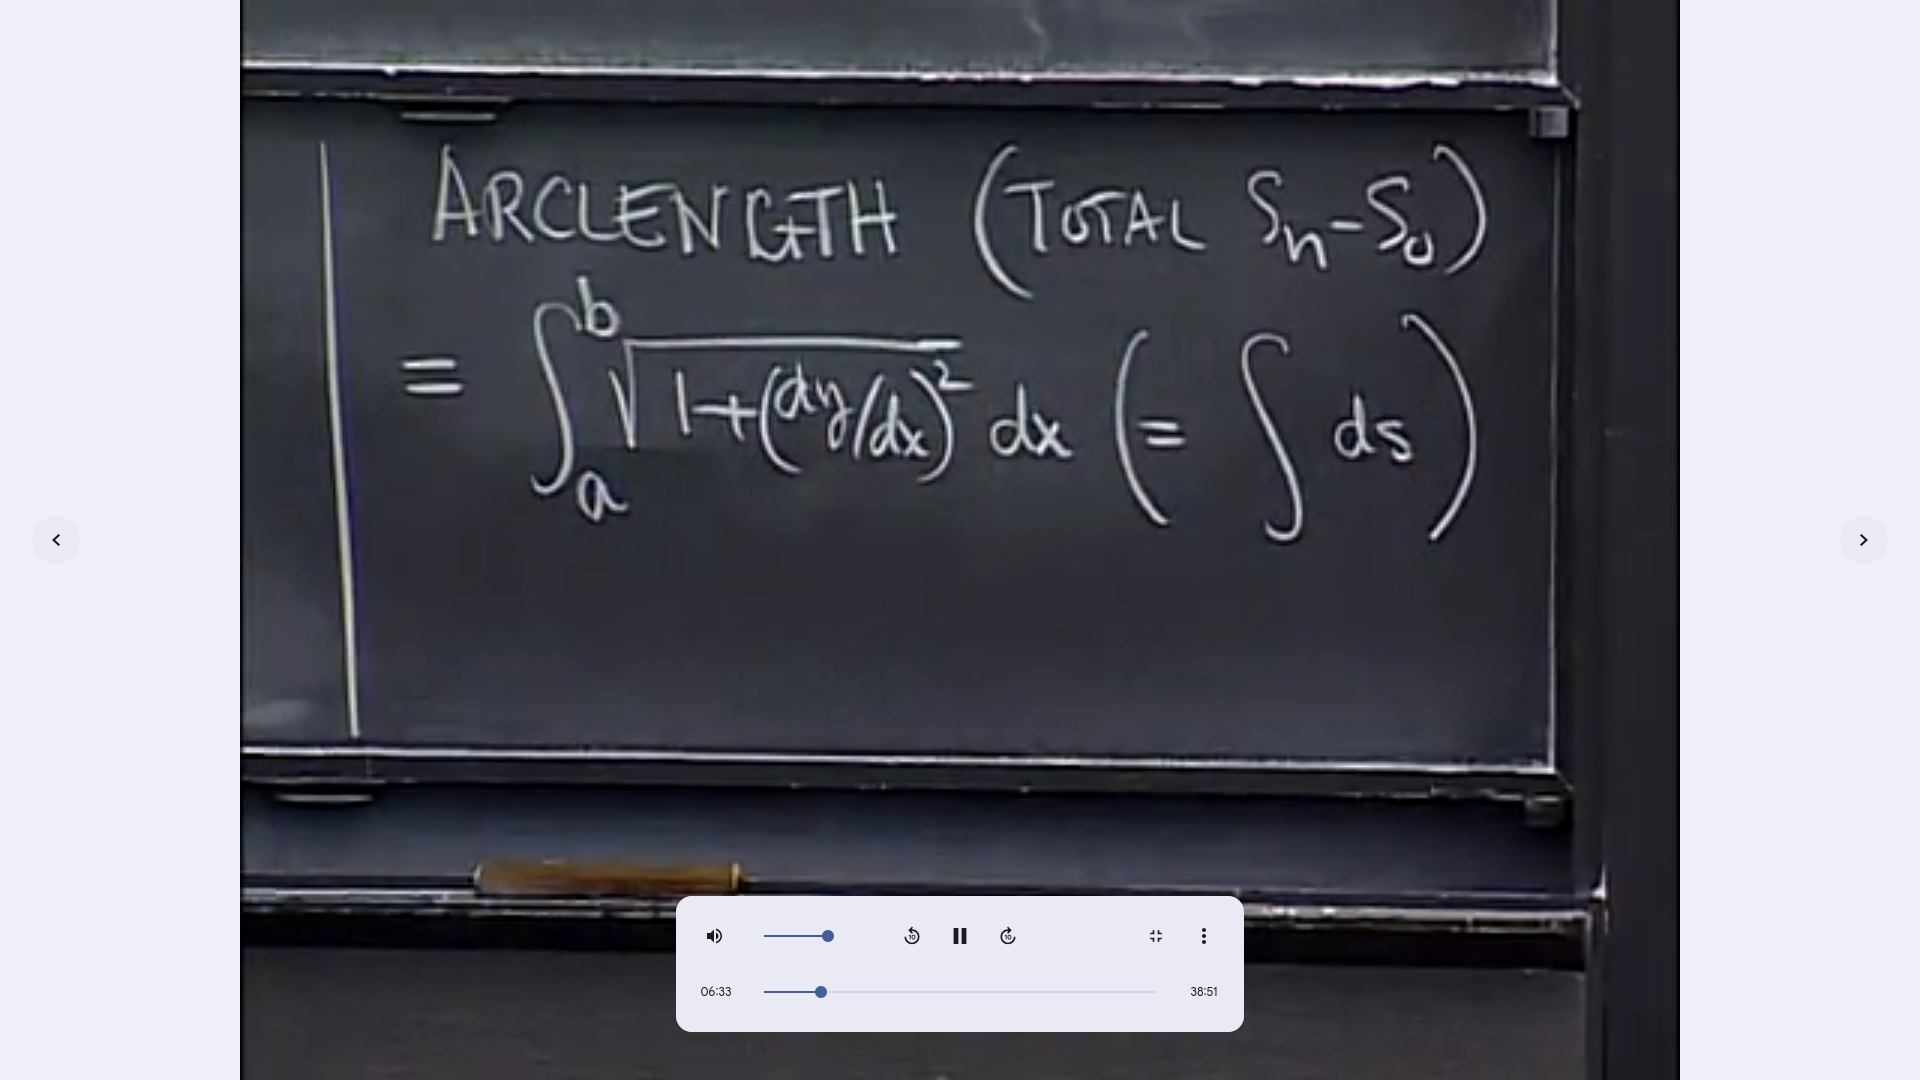 ARCLENGTH (TOTAL Sₙ-S₀)
= ∫ₐᵇ √(1+(dy/dx)²) dx (= ∫ ds)
10
10
06:33
38:51